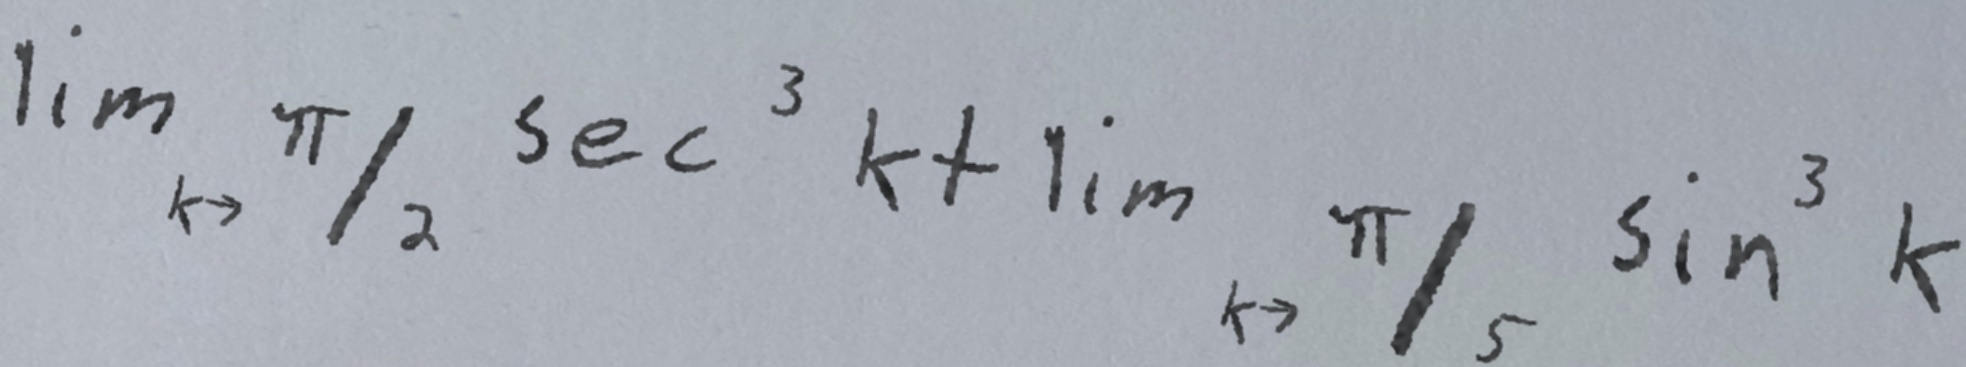 lim k→ π/2 sec³ k + lim k→ π/5 sin³ k